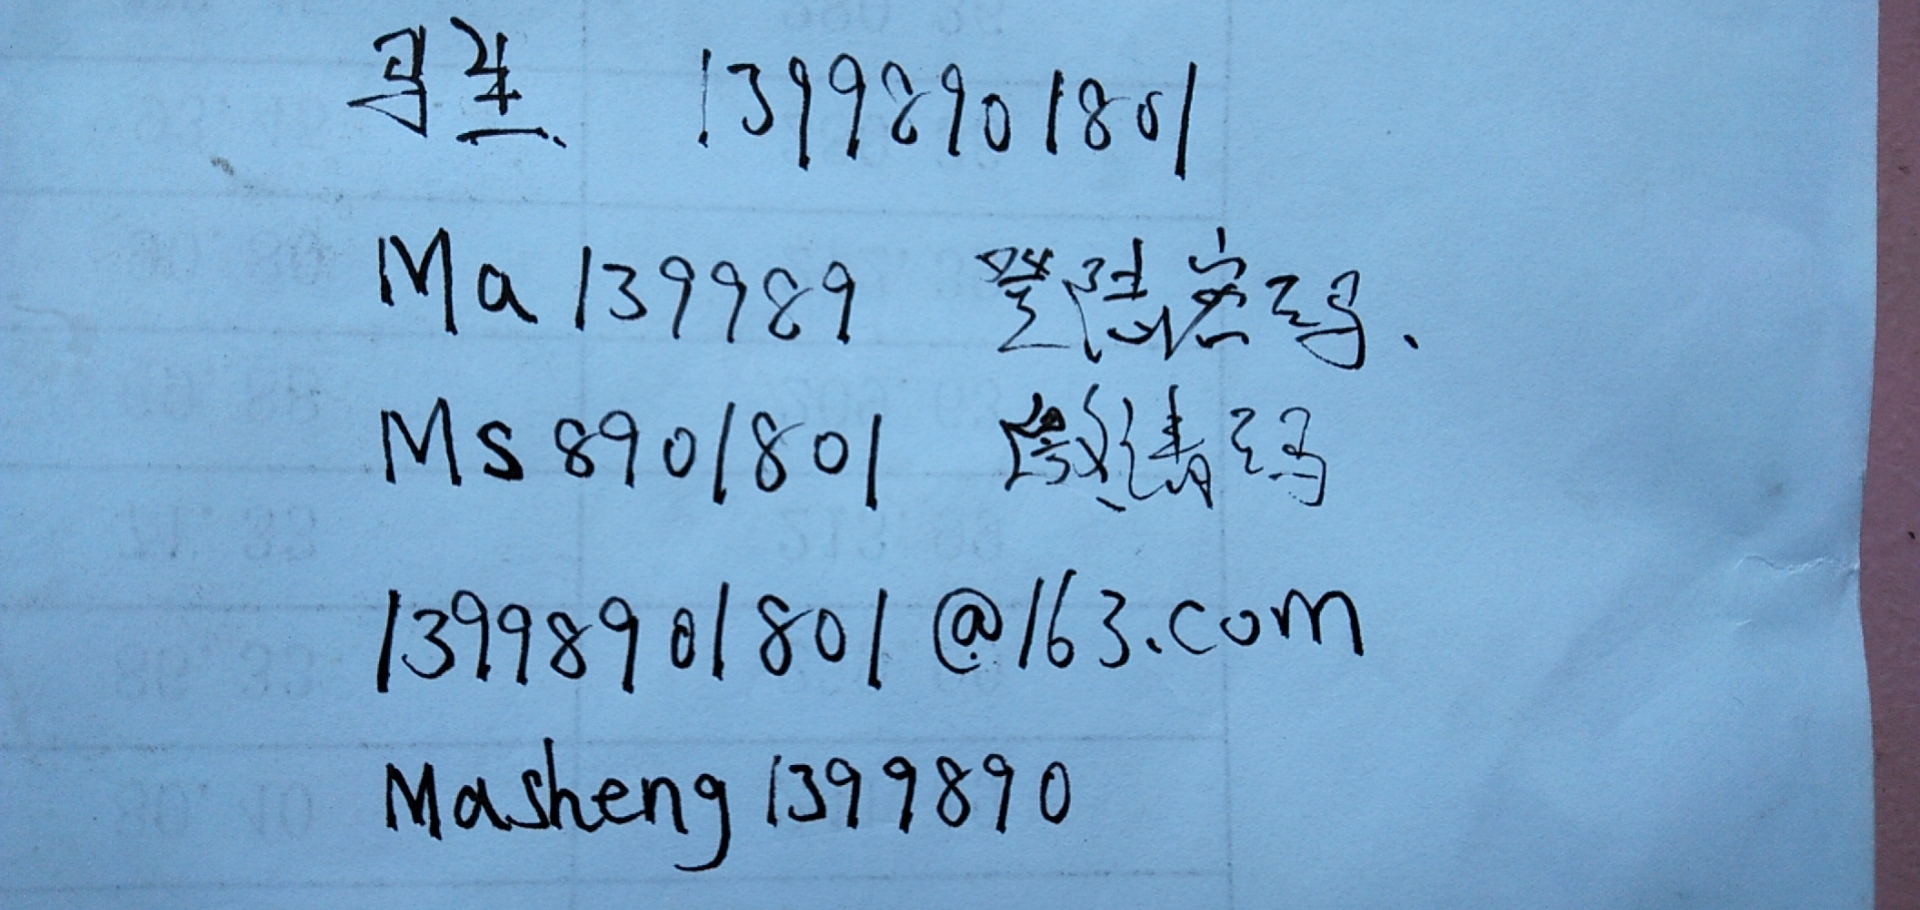 马生 13998901801
Ma139989 登陆密码.
Ms8901801 邀请码
13998901801@163.com
Masheng1399890